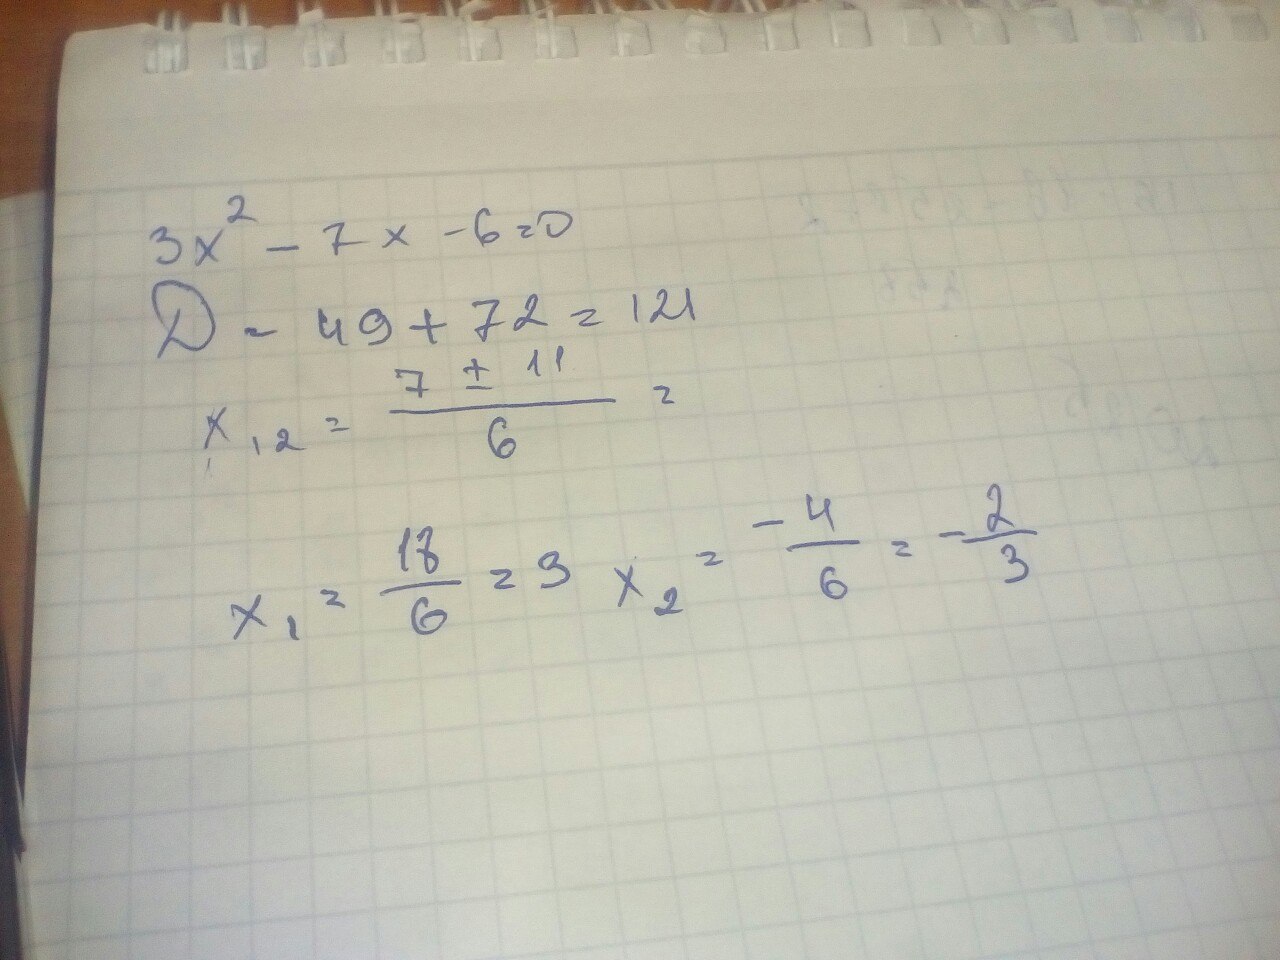 3x² - 7x - 6 = 0
D = 49 + 72 = 121
x₁,₂ = (7 ± 11)/6 =
x₁ = 18/6 = 3 x₂ = -4/6 = -2/3